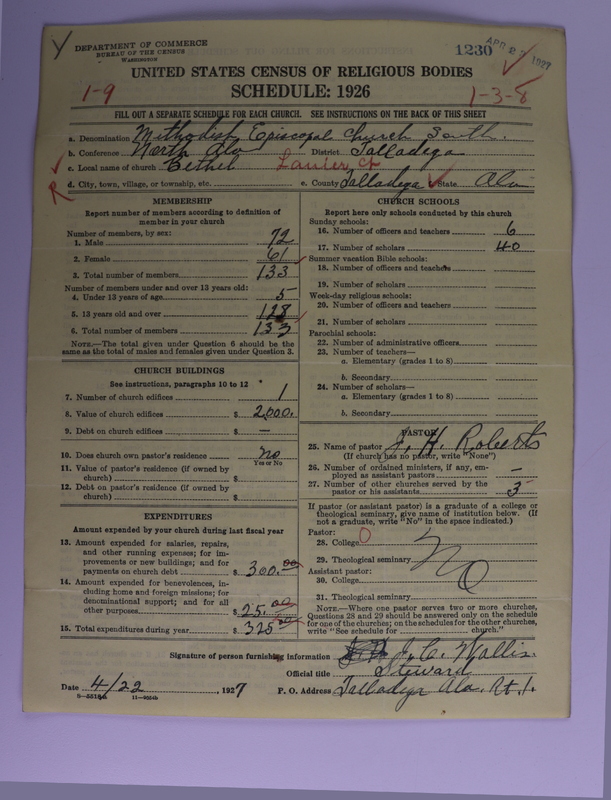 Y
DEPARTMENT OF COMMERCE
BUREAU OF THE CENSUS
WASHINGTON
1230
APR 2 1927
UNITED STATES CENSUS OF RELIGIOUS BODIES
SCHEDULE: 1926
1-9
1-3-8
FILL OUT A SEPARATE SCHEDULE FOR EACH CHURCH. SEE INSTRUCTIONS ON THE BACK OF THIS SHEET
a. Denomination Methodist Episcopal Church South.
b. Conference North Ala District Talladega
c. Local name of church Bethel Lanier Ct
d. City, town, village, or township, etc. e. County Talladega State Ala
R
MEMBERSHIP
Report number of members according to definition of
member in your church
Number of members, by sex:
1. Male 72
2. Female 61
3. Total number of members 133
Number of members under and over 13 years old:
4. Under 13 years of age 5
5. 13 years old and over 128
6. Total number of members 133
NOTE.—The total given under Question 6 should be the
same as the total of males and females given under Question 3.
CHURCH BUILDINGS
See instructions, paragraphs 10 to 12
7. Number of church edifices 1
8. Value of church edifices $ 2,000.
9. Debt on church edifices $ —
10. Does church own pastor's residence No
Yes or No
11. Value of pastor's residence (if owned by
church) $
12. Debt on pastor's residence (if owned by
church) $
EXPENDITURES
Amount expended by your church during last fiscal year
13. Amount expended for salaries, repairs,
and other running expenses; for im-
provements or new buildings; and for
payments on church debt $ 300.00
14. Amount expended for benevolences, in-
cluding home and foreign missions; for
denominational support; and for all
other purposes $ 25.00
15. Total expenditures during year $ 325.00
CHURCH SCHOOLS
Report here only schools conducted by this church
Sunday schools:
16. Number of officers and teachers 6
17. Number of scholars 40
Summer vacation Bible schools:
18. Number of officers and teachers
19. Number of scholars
Week-day religious schools:
20. Number of officers and teachers
21. Number of scholars
Parochial schools:
22. Number of administrative officers
23. Number of teachers—
a. Elementary (grades 1 to 8)
b. Secondary
24. Number of scholars—
a. Elementary (grades 1 to 8)
b. Secondary
PASTOR
25. Name of pastor J. H. Roberts
(If church has no pastor, write "None")
26. Number of ordained ministers, if any, em-
ployed as assistant pastors —
27. Number of other churches served by the
pastor or his assistants 3
If pastor (or assistant pastor) is a graduate of a college or
theological seminary, give name of institution below. (If
not a graduate, write "No" in the space indicated.)
Pastor:
28. College 0
No
29. Theological seminary
Assistant pastor:
30. College
31. Theological seminary
NOTE.—Where one pastor serves two or more churches,
Questions 28 and 29 should be answered only on the schedule
for one of the churches; on the schedules for the other churches,
write "See schedule for church."
Signature of person furnishing information J. C. Wallis.
Official title Steward
Date 4/22 1927 P. O. Address Talladega Ala. Rt. 1.
11—9954b